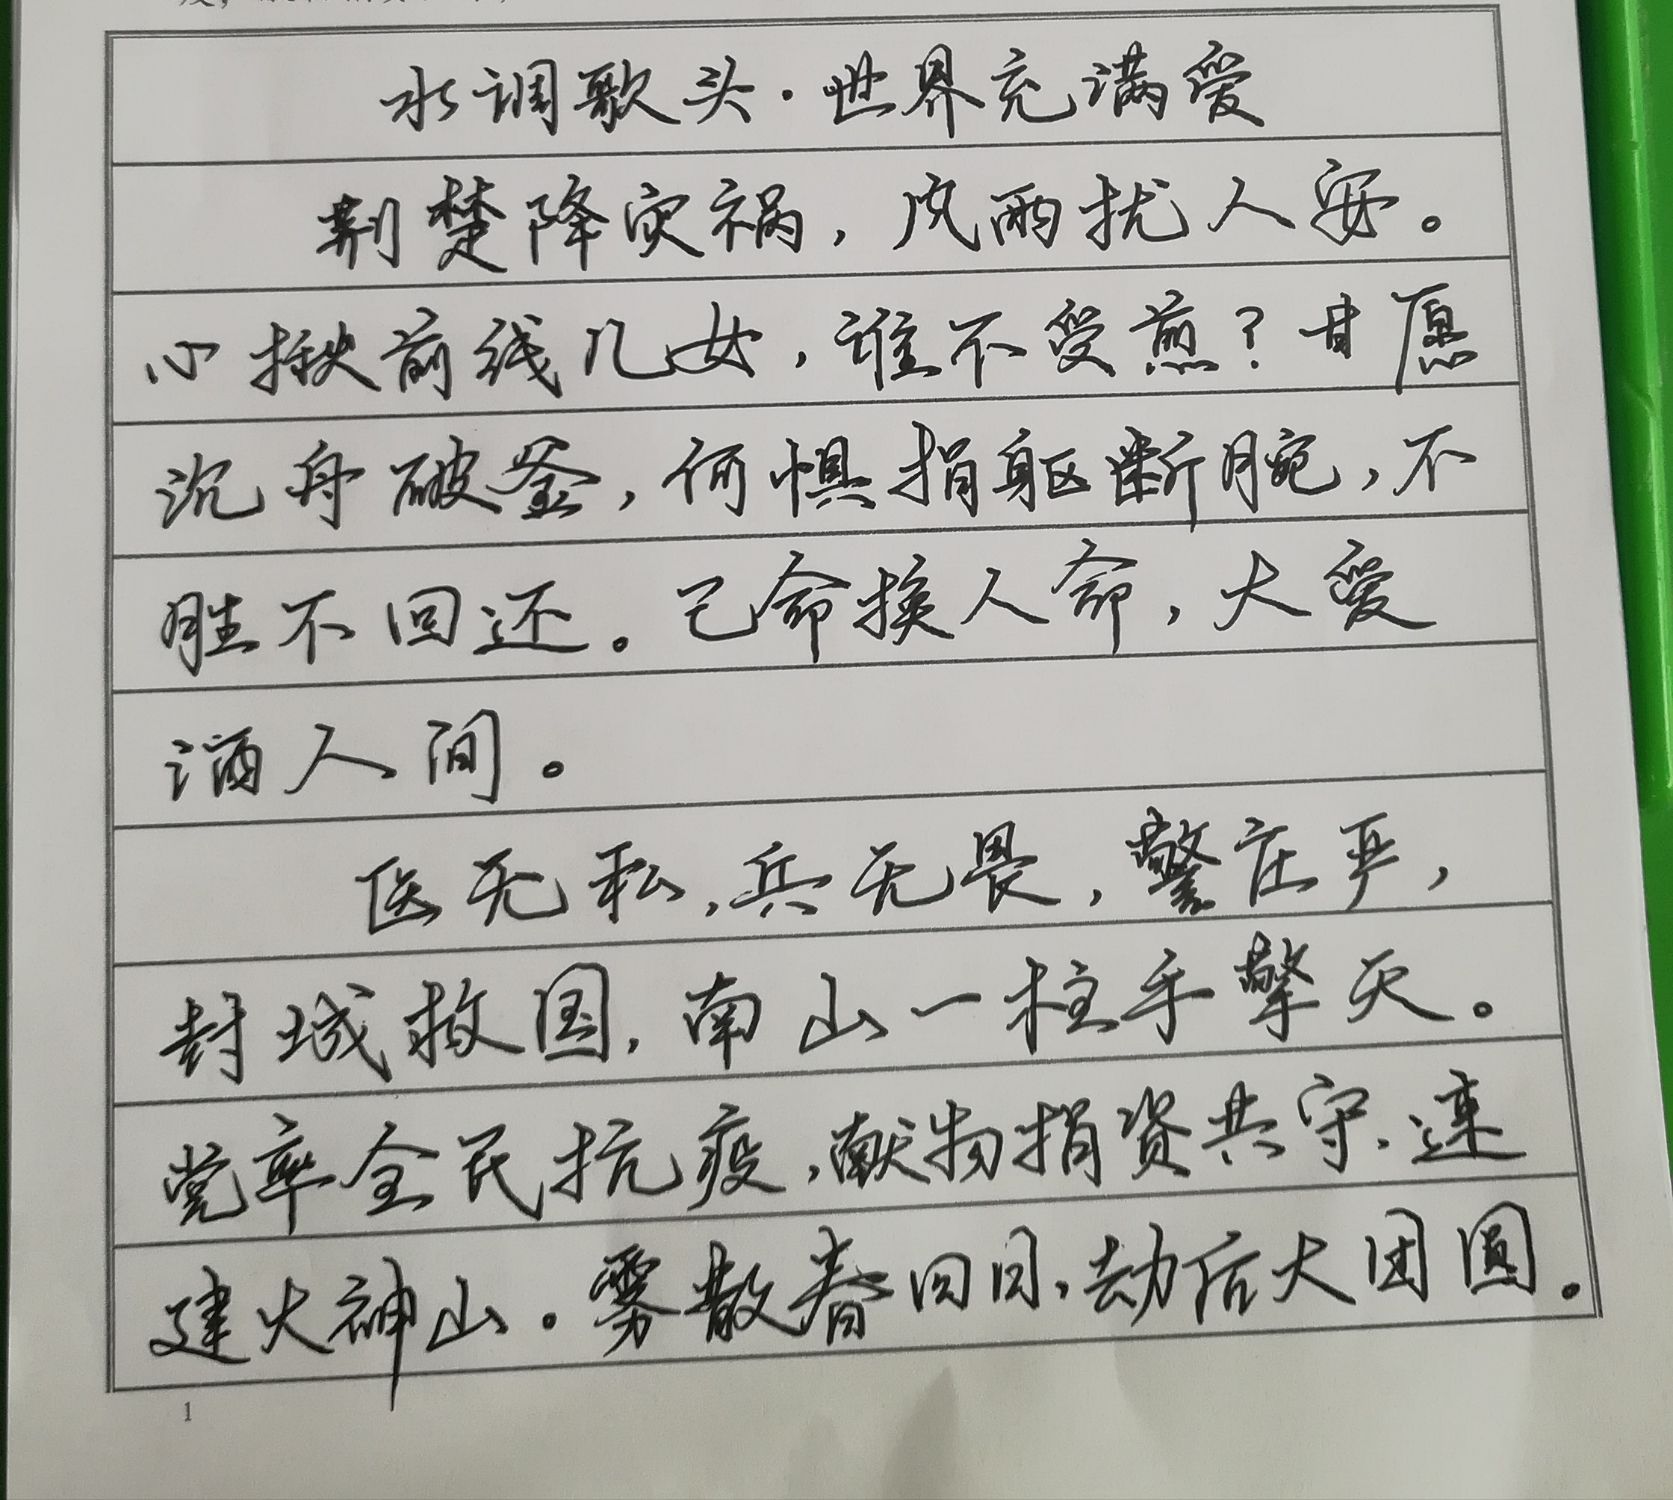 水调歌头·世界充满爱
荆楚降灾祸，风雨扰人安。
心揪前线儿女，谁不受煎？甘愿
沉舟破釜，何惧捐躯断腕，不
胜不回还。己命换人命，大爱
洒人间。
医无私，兵无畏，警庄严，
封城救国，南山一柱手擎天。
党率全民抗疫，献物捐资共守，速
建火神山。雾散春回日，劫后大团圆。
1